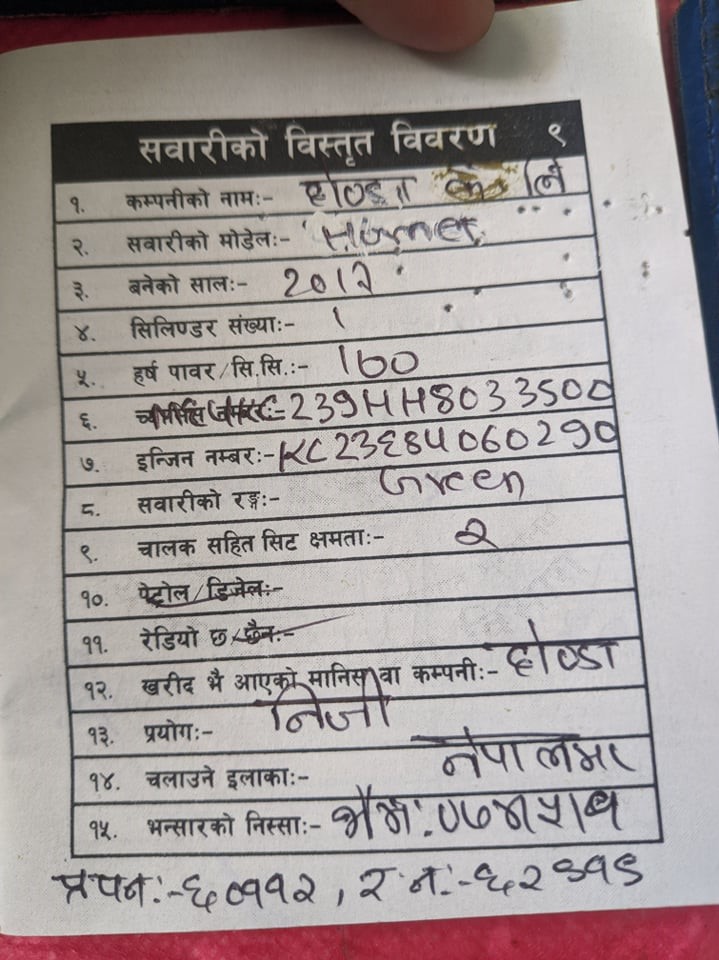 सवारीको विस्तृत विवरण १
१. कम्पनीको नामः- होण्डा के लि
२. सवारीको मोडेलः- Hornet
३. बनेको सालः- 2017
४. सिलिण्डर संख्याः- 1
५. हर्ष पावर/सि.सि.ः- 160
६. 239HH8033500
७. इन्जिन नम्बरः- KC23E84060290
८. सवारीको रङ्गः- Green
९. चालक सहित सिट क्षमताः- २
१०. पेट्रोल/डिजेलः-
११. रेडियो छ/छैनः-
१२. खरीद भै आएको मानिस वा कम्पनीः- होण्डा
१३. प्रयोगः- निजी
१४. चलाउने इलाकाः- नेपालभर
१५. भन्सारको निस्साः-
प्रपनः-६०११२, र नः-